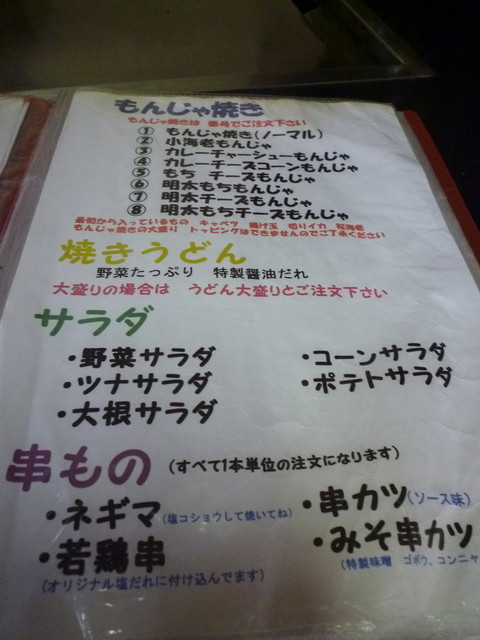 もんじゃ焼き
もんじゃ焼きは 番号でご注文下さい
① もんじゃ焼き(ノーマル)
② 小海老もんじゃ
③ カレーチャーシューもんじゃ
④ カレーチーズコーンもんじゃ
⑤ もち チーズもんじゃ
⑥ 明太もちもんじゃ
⑦ 明太チーズもんじゃ
⑧ 明太もちチーズもんじゃ
最初から入っているもの キャベツ 揚げ玉 切りイカ
もんじゃ焼きの大盛り トッピングはできませんのでご了承ください
焼きうどん
野菜たっぷり 特製醤油だれ
大盛りの場合は うどん大盛りとご注文下さい
サラダ
・野菜サラダ ・コーンサラダ
・ツナサラダ ・ポテトサラダ
・大根サラダ
串もの (すべて1本単位の注文になります)
・ネギマ(塩コショウして焼いてね) ・串カツ(ソース味)
・若鶏串 ・みそ串カツ
(オリジナル塩だれに付け込んでます) (特製味噌 ゴボウ、コンニャ